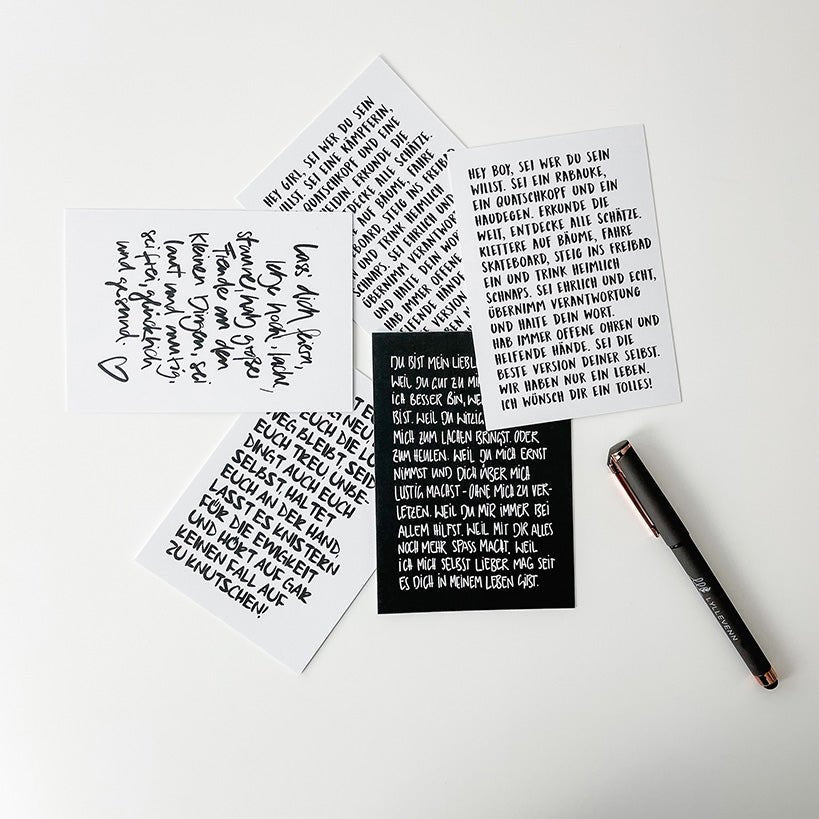 HEY GIRL, SEI WER DU SEIN
WILLST. SEI EINE KÄMPFERIN,
QUATSCHKOPF UND EINE
ERKUNDE DIE
ALLE SCHÄTZE.
AUF BÄUME, FAHRE
STEIG INS FREIBAD
UND TRINK HEIMLICH
SCHNAPS. SEI EHRLICH UND
ÜBERNIMM
UND HALTE DEIN
HAB IMMER OFFENE
HELFENDE HÄNDE
VERSION
HEY BOY, SEI WER DU SEIN
WILLST. SEI EIN RABAUKE,
EIN QUATSCHKOPF UND EIN
HAUDEGEN. ERKUNDE DIE
WELT, ENTDECKE ALLE SCHÄTZE.
KLETTERE AUF BÄUME, FAHRE
SKATEBOARD, STEIG INS FREIBAD
EIN UND TRINK HEIMLICH
SCHNAPS. SEI EHRLICH UND ECHT,
ÜBERNIMM VERANTWORTUNG
UND HALTE DEIN WORT.
HAB IMMER OFFENE OHREN UND
HELFENDE HÄNDE. SEI DIE
BESTE VERSION DEINER SELBST.
WIR HABEN NUR EIN LEBEN.
ICH WÜNSCH DIR EIN TOLLES!
Lass' dich feiern,
lebe hoch, lache,
staune, hab große
Freude an den
kleinen Dingen, sei
laut und mutig,
glücklich
und gesund.
EUCH DIE
WEG BLEIBT. SEID
EUCH TREU UNBE-
DINGT AUCH EUCH
SELBST. HALTET
EUCH AN DER HAND
LASST ES KNISTERN
FÜR DIE EWIGKEIT
UND HÖRT AUF GAR
KEINEN FALL AUF
ZU KNUTSCHEN!
DU BIST MEIN
WEIL DU GUT ZU
ICH BESSER BIN,
BIST. WEIL DU WITZIG
MICH ZUM LACHEN BRINGST. ODER
ZUM HEULEN. WEIL DU MICH ERNST
NIMMST UND DICH ÜBER MICH
LUSTIG MACHST - OHNE MICH ZU VER-
LETZEN. WEIL DU MIR IMMER BEI
ALLEM HILFST. WEIL MIT DIR ALLES
NOCH MEHR SPASS MACHT. WEIL
ICH MICH SELBST LIEBER MAG SEIT
ES DICH IN MEINEM LEBEN GIBT.
LYLLEVENN